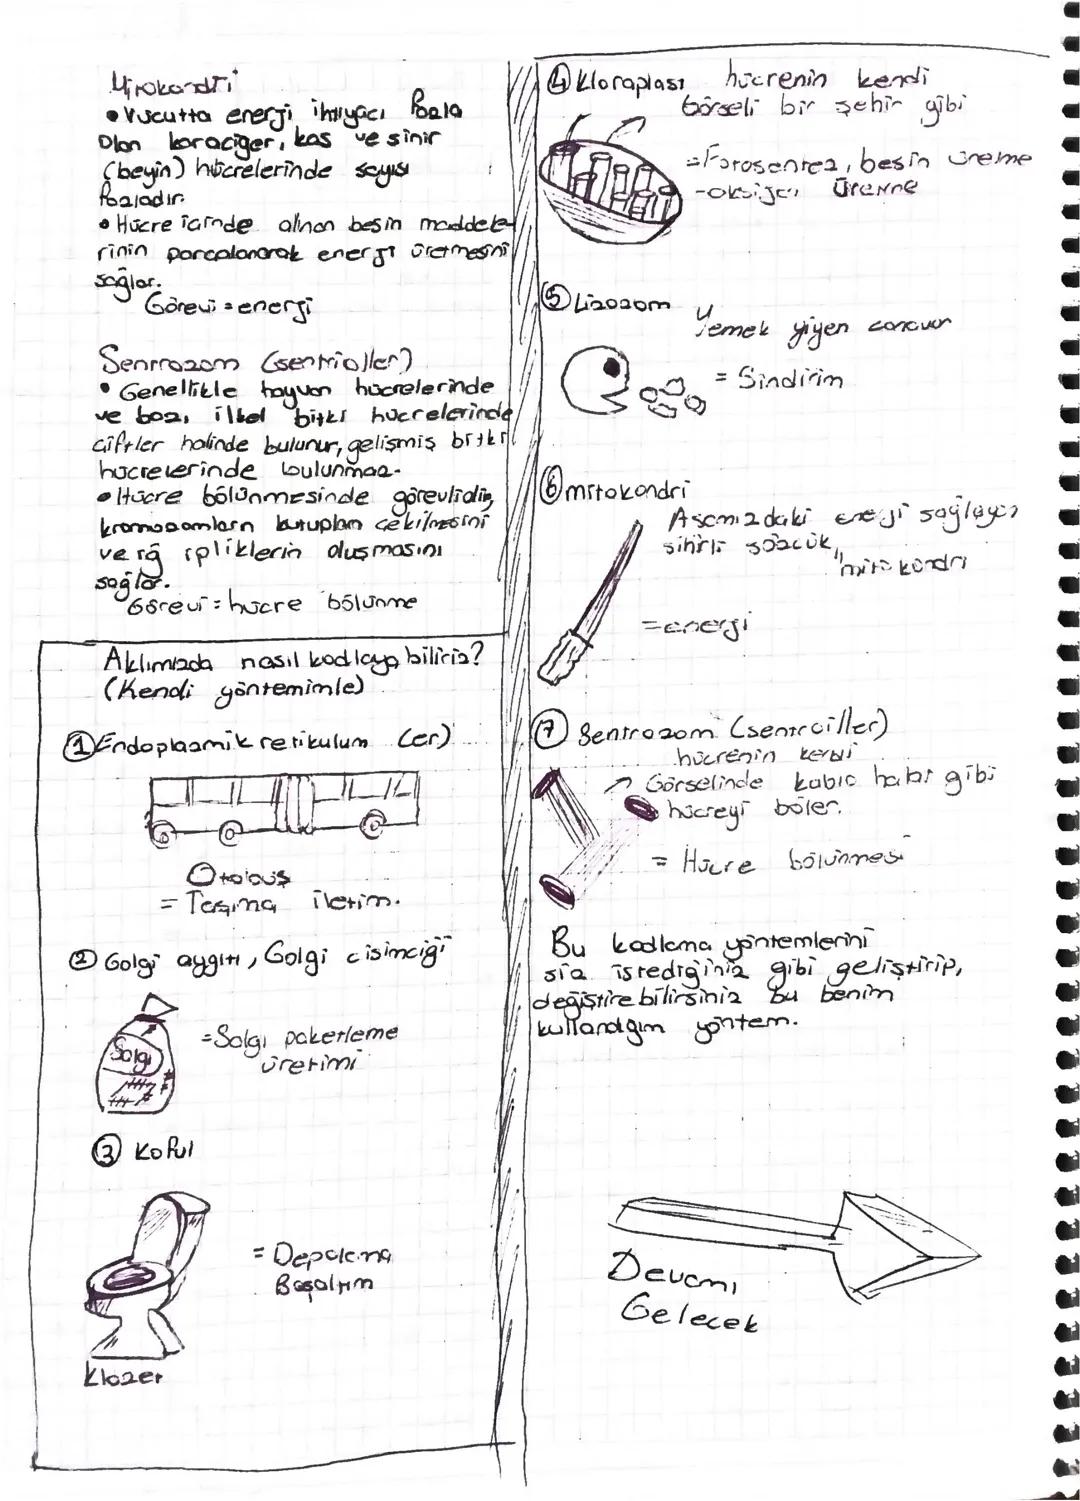 Mitokondri
• Vücutta energi ihtiyacı fazla
olan karaciğer, kas ve sinir
(beyin) hücrelerinde sayısı
fazladır.
• Hücre içinde alınan besin maddele-
rinin parçalanarak energi üretmesini
sağlar.
Görevi = energi
Sentrozom (sentrioller)
• Genellikle hayvan hücrelerinde
ve bazı ilkel bitki hücrelerinde
çiftler halinde bulunur, gelişmiş bitki
hücrelerinde bulunmaz.
• Hücre bölünmesinde görevlidir,
kromozomların kutupları çekilmesini
ve iğ ipliklerin oluşmasını
sağlar.
Görevi = hücre bölünme
Aklımızda nasıl kodlaya biliriz?
(Kendi yöntemimle)
① Endoplazmik retikulum (er)
Otobüs
= Taşıma iletim.
② Golgi aygıtı, Golgi cisimciği
Salgı
= Salgı paketleme
üretimi
③ Koful
= Depolama
Boşaltım
Klozet
④ Kloroplast hücrenin kendi
görseli bir şehir gibi
= Fotosentez, besin üretme
- oksijen üretme
⑤ Lizozom
Yemek yiyen canavar
= Sindirim
⑥ mitokondri
Asamızdaki enerji sağlayıcı
sihirli sözcük,,
"mitokondri
= energi
⑦ Sentrozom (sentroiller)
hücrenin kendi
Görselinde kablo hattı gibi
hücreyi böler.
= Hücre bölünmesi
Bu kodlama yöntemlerini
siz istediğiniz gibi geliştirip,
değiştire bilirsiniz bu benim
kullandığım yöntem.
Devamı
Gelecek